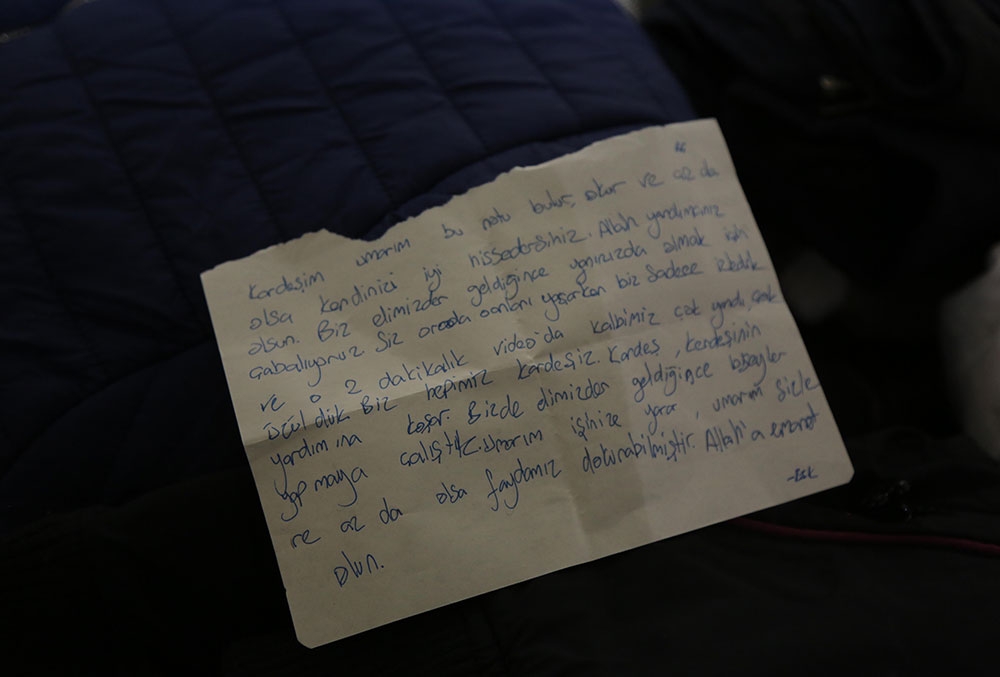 Kardeşim umarım bu notu bulur, okur ve az da
olsa kendinizi iyi hissedersiniz. Allah yardımcınız
olsun. Biz elimizden geldiğince yanınızda olmak için
çabalıyoruz. Siz orada onları yaşarken biz sadece izledik
ve o 2 dakikalık video'da kalbimiz çok yandı, çok
üzüldük. Biz hepimiz kardeşiz. Kardeş, kardeşinin
yardımına koşar. Bizde elimizden geldiğince bişeyler
yapmaya çalıştık. Umarım işinize yarar, umarım sizle
re az da olsa faydamız dokunabilmiştir. Allah'a emanet
olun.